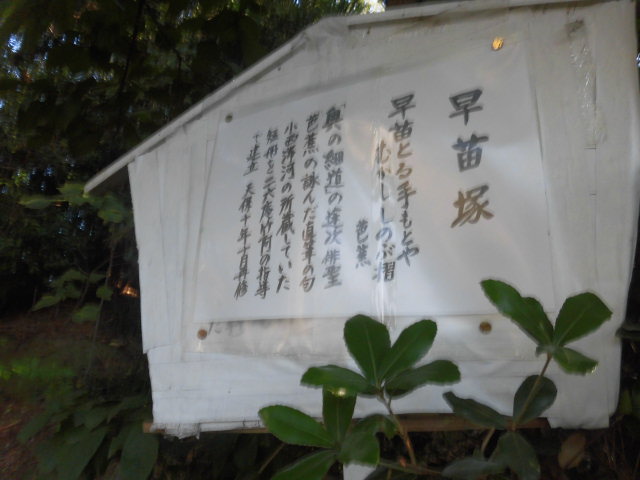 早苗塚
早苗とる手もとや
むかししのぶ摺
芭蕉
「奥の細道の途次 俳聖
芭蕉の詠んだ真筆の句
小 河の所蔵していた
の指導
建立 天保十年十月再修